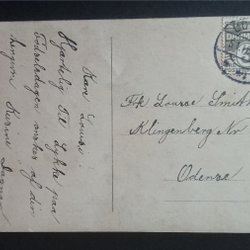 Kære Louise
Hjærtelig Til Lykke paa
Fødselsdagen ønskes af din
hengivne Kirine
Frk Louise Smith
Klingenberg Nr
Odense